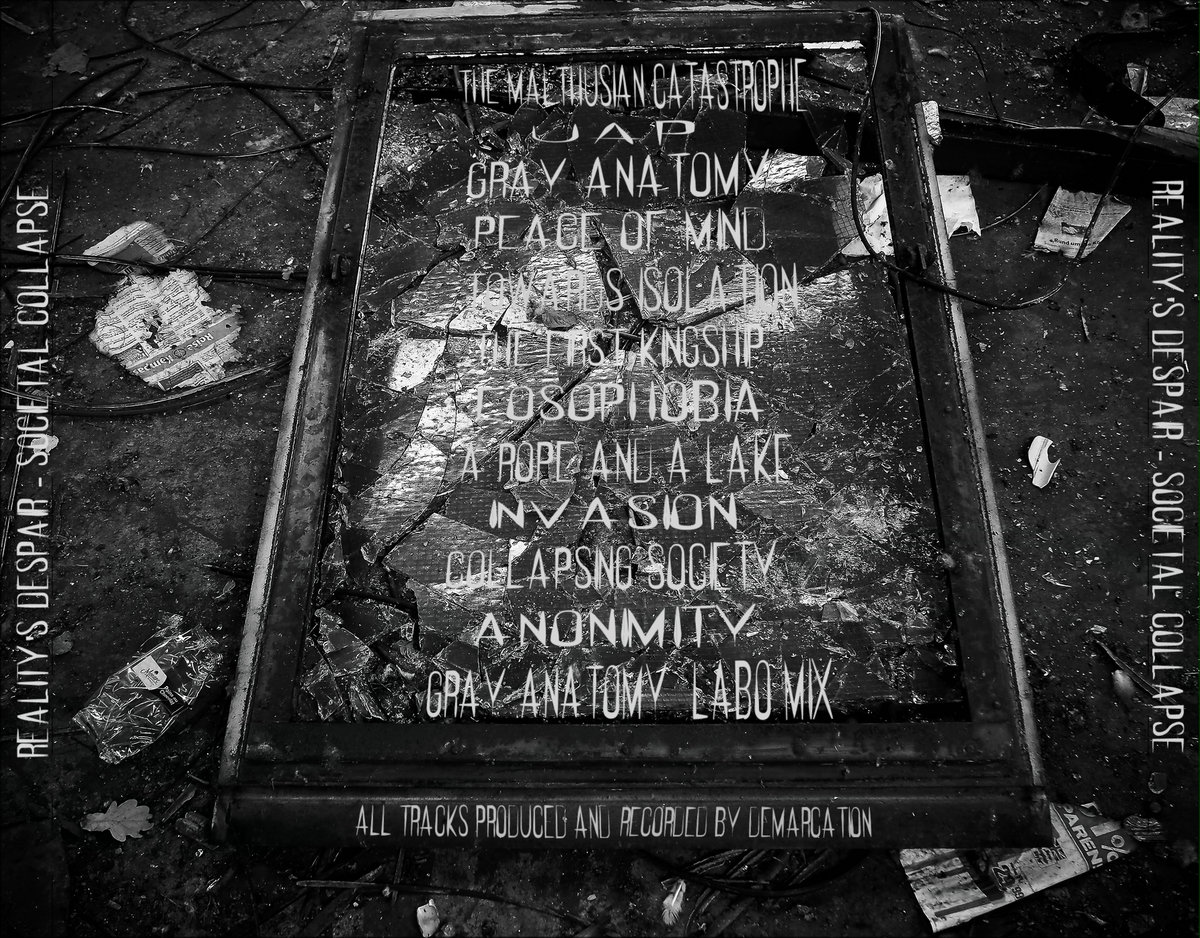 THE MALTHUSIAN CATASTROPHE
UAP
GRAY ANATOMY
PEACE OF MIND
TOWARDS ISOLATION
THE LAST KINGSHIP
EOSOPHOBIA
A ROPE AND A LAKE
INVASION
COLLAPSING SOCIETY
ANONIMITY
GRAY ANATOMY LABO MIX
ALL TRACKS PRODUCED AND RECORDED BY DEMARCATION
REALITY'S DESPAIR - SOCIETAL COLLAPSE
REALITY'S DESPAIR - SOCIETAL COLLAPSE